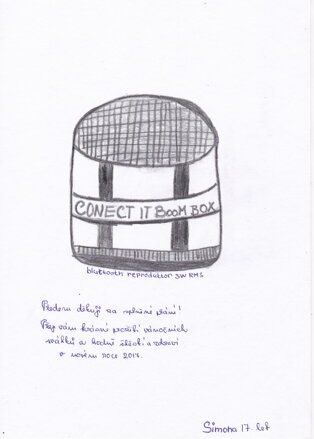 CONECT IT BOOM BOX
blutooth reproduktor 3W RMS
Předem děkuji za splněné přání!
Přeji vám krásné prožití vánočních
svátků a hodně štěstí a zdraví
v novém roce 2017.
Simona 17. let